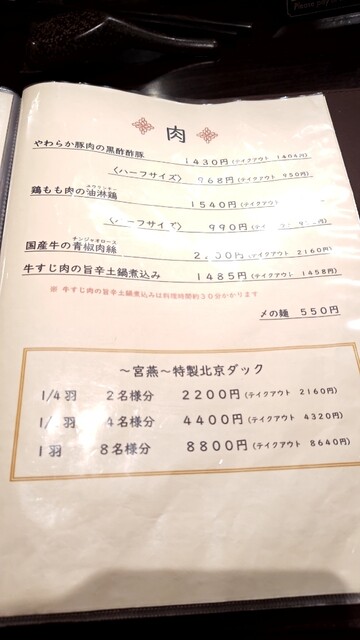 肉
やわらか豚肉の黒酢酢豚 1430円(テイクアウト 1404円)
〈ハーフサイズ〉 968円(テイクアウト 950円)
ユウリンチー
鶏もも肉の油淋鶏 1540円(テイクアウト
990円
チンジャオロース
国産牛の青椒肉絲 (テイクアウト 2160円)
牛すじ肉の旨辛土鍋煮込み 1485円(テイクアウト 1458円)
※ 牛すじ肉の旨辛土鍋煮込みは料理時間約30分かかります
〆の麺 550円
～宮燕～特製北京ダック
1/4羽 2名様分 2200円(テイクアウト 2160円)
4名様分 4400円(テイクアウト 4320円)
1羽 8名様分 8800円(テイクアウト 8640円)